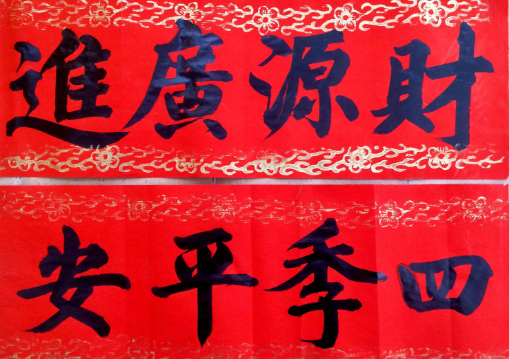 財源廣進
四季平安